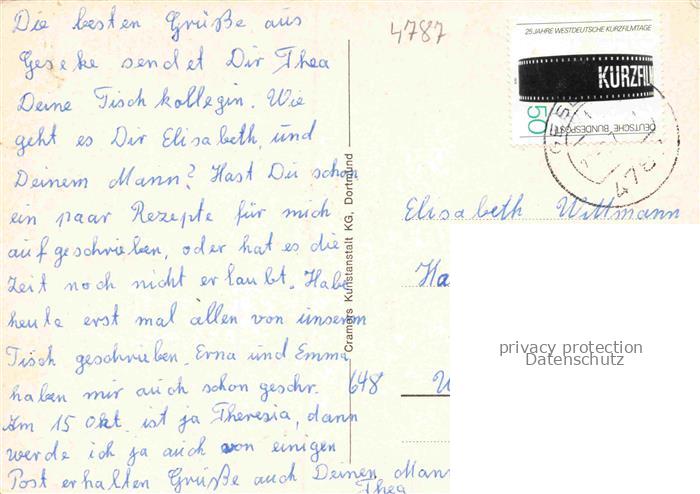 Die besten Grüße aus
Geseke sendet Dir Thea
Deine Tischkollegin. Wie
geht es Dir Elisabeth, und
Deinem Mann? Hast Du schon
ein paar Rezepte für mich
aufgeschrieben, oder hat es die
Zeit noch nicht erlaubt. Habe
heute erst mal allen von unserem
Tisch geschrieben. Erna und Emma
haben mir auch schon geschr.
Am 15 Okt. ist ja Theresia, dann
werde ich ja auch von einigen
Post erhalten Grüße auch Deinen Mann
Thea
Cramers Kunstanstalt KG, Dortmund
4787
25 JAHRE WESTDEUTSCHE KURZFILMTAGE
KURZFILM
50
DEUTSCHE BUNDESPOST
Elisabeth Wittmann
Ha
648 W
privacy protection
Datenschutz